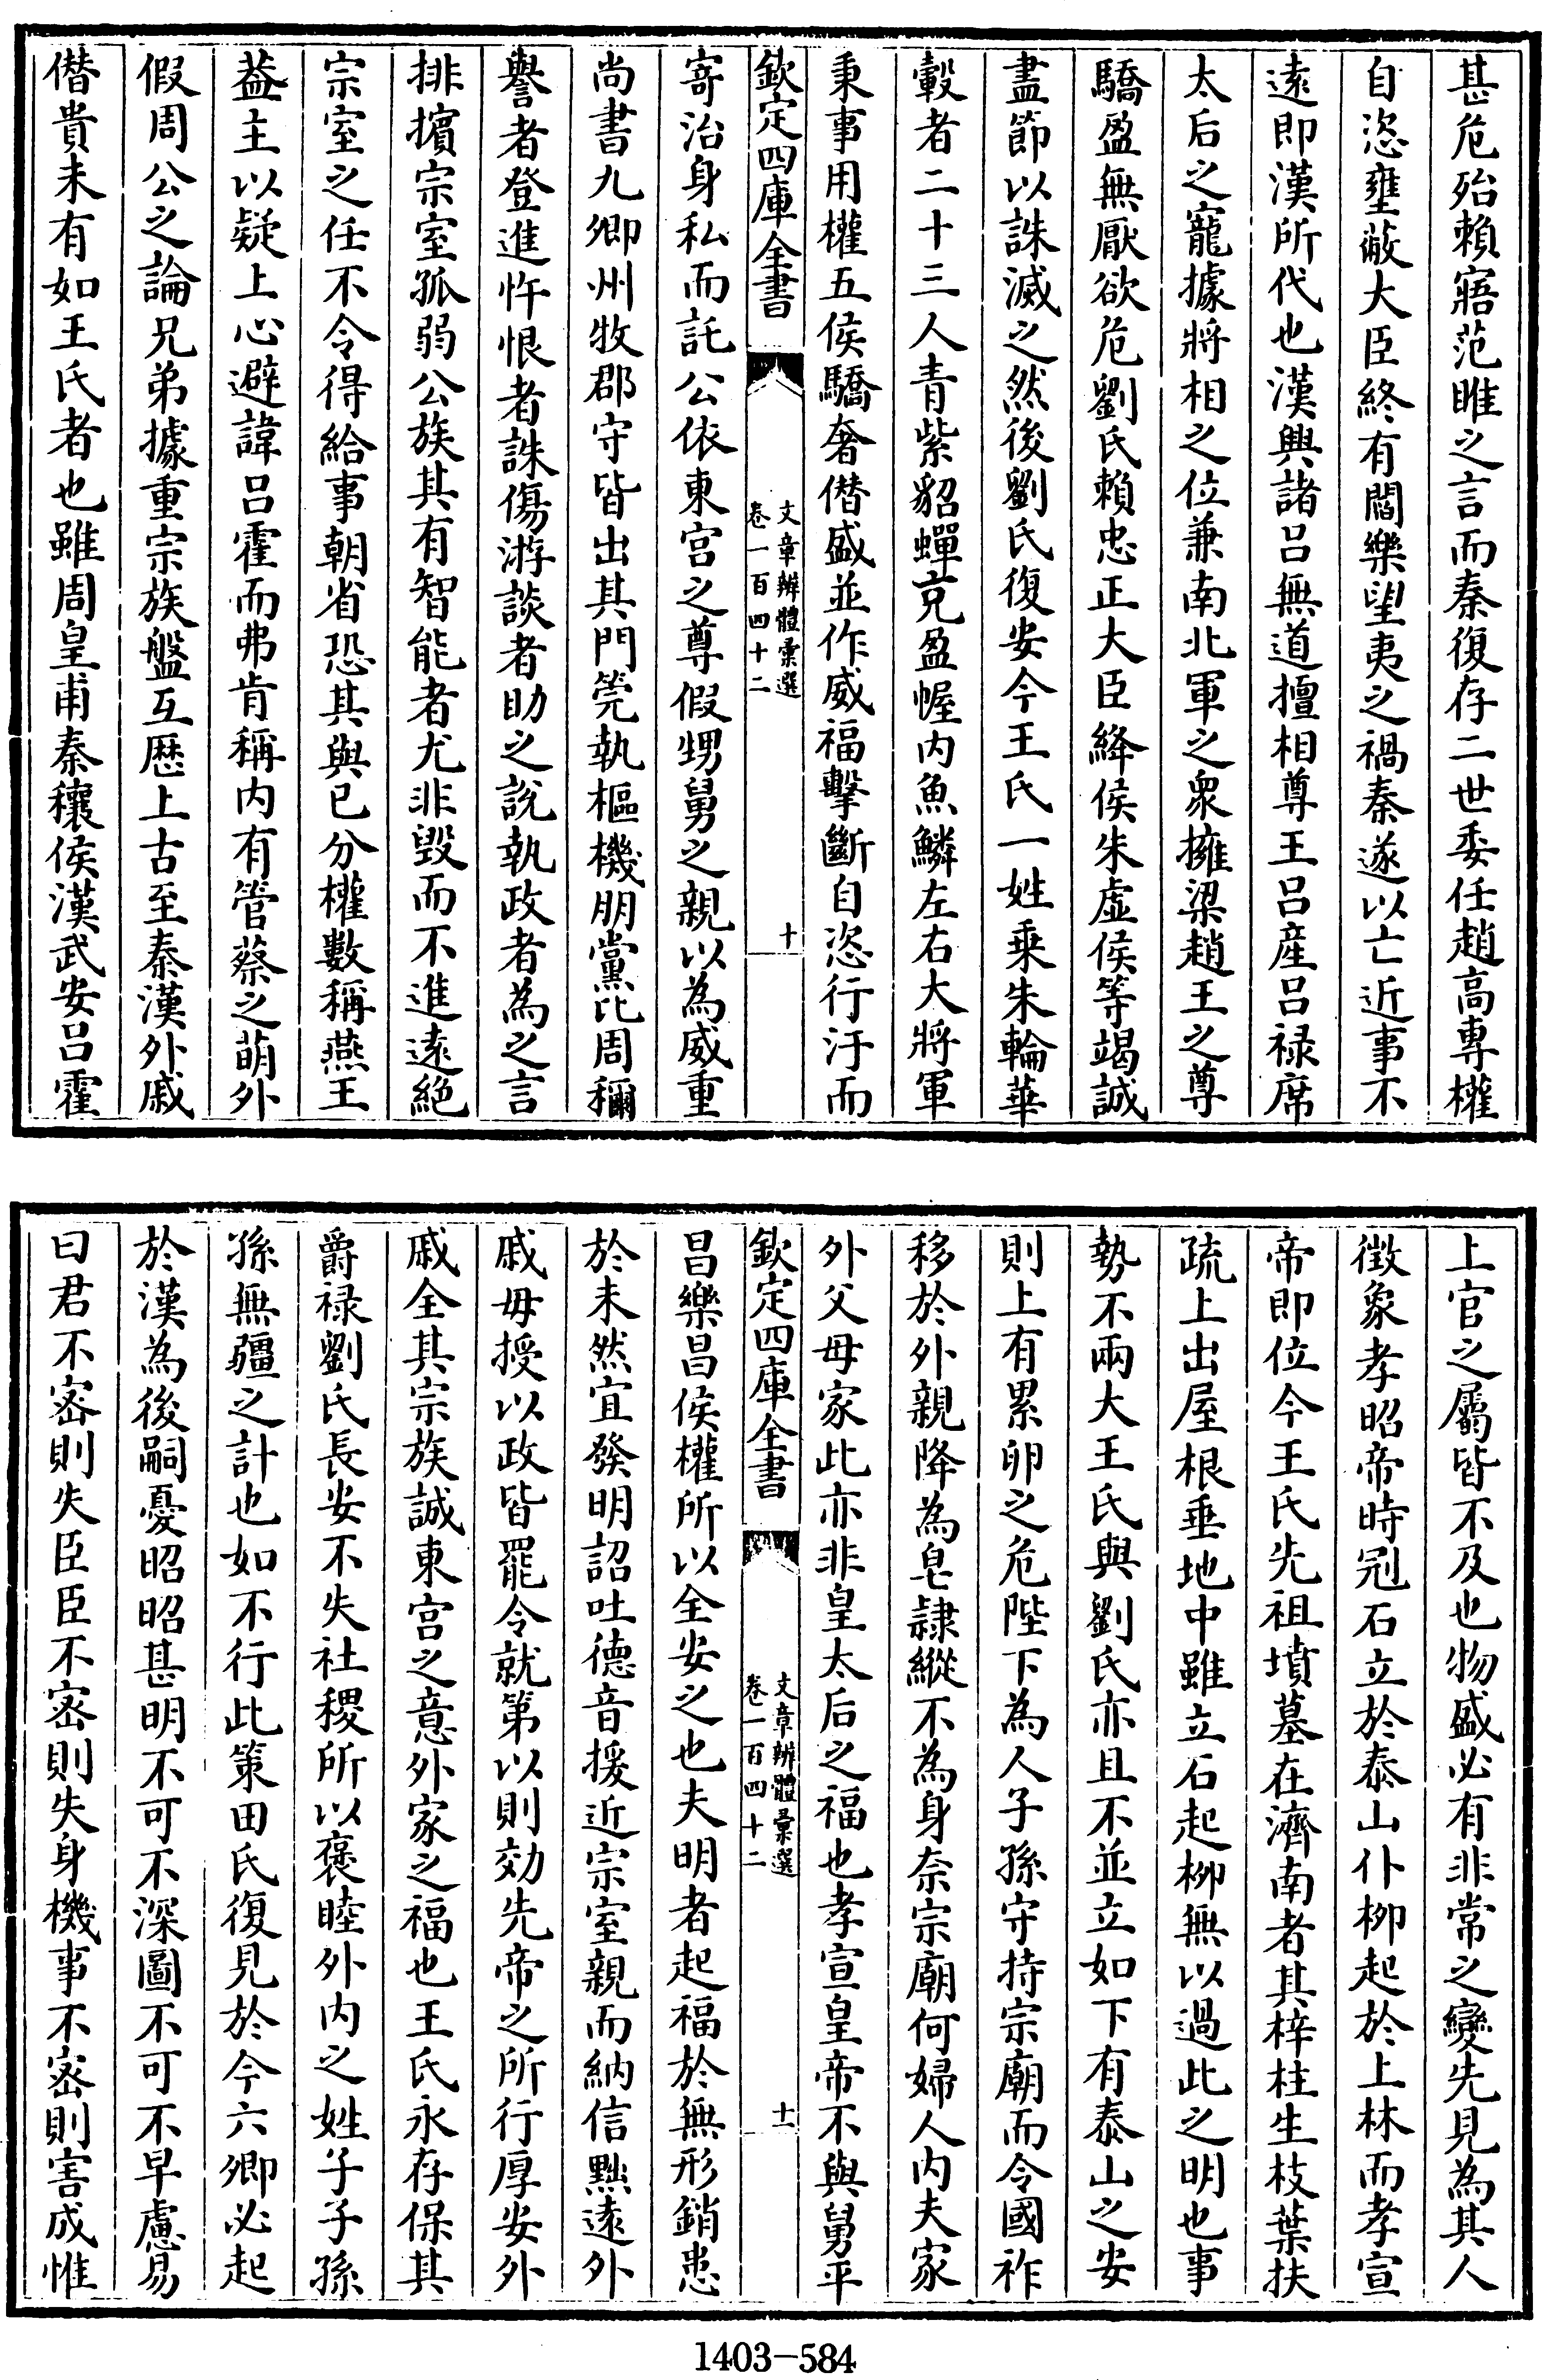 甚危殆賴寤范睢之言而秦復存二世委任趙高專權
自恣壅蔽大臣終有閻樂望夷之禍秦遂以亡近事不
逺即漢所代也漢興諸吕無道擅相尊王吕産吕禄席
太后之寵據將相之位兼南北軍之衆擁梁趙王之尊
驕盈無厭欲危劉氏賴忠正大臣絳侯朱虚侯等竭誠
盡節以誅滅之然後劉氏復安今王氏一姓乗朱輪華
轂者二十三人青紫貂蟬充盈幄内魚鱗左右大將軍
秉事用權五侯驕奢僭盛並作威福擊斷自恣行汙而
欽定四庫全書
文章辨體彚選
卷一百四十二
十
寄治身私而託公依東宫之尊假甥舅之親以為威重
尚書九卿州牧郡守皆出其門筦執樞機朋黨比周稱
譽者登進忤恨者誅傷游談者助之説執政者為之言
排擯宗室孤弱公族其有智能者尤非毁而不進逺絶
宗室之任不令得給事朝省恐其與已分權數稱燕王
葢主以疑上心避諱吕霍而弗肯稱内有管蔡之萌外
假周公之論兄弟據重宗族盤互歴上古至秦漢外戚
僭貴未有如王氏者也雖周皇甫秦穰侯漢武安吕霍
上官之屬皆不及也物盛必有非常之變先見為其人
徴象孝昭帝時冠石立於泰山仆栁起於上林而孝宣
帝即位今王氏先祖墳墓在濟南者其梓柱生枝葉扶
疏上出屋根垂地中雖立石起栁無以過此之明也事
勢不兩大王氏與劉氏亦且不並立如下有泰山之安
則上有累卵之危陛下為人子孫守持宗廟而令國祚
移於外親降為皂隷縱不為身奈宗廟何婦人内夫家
外父母家此亦非皇太后之福也孝宣皇帝不與舅平
欽定四庫全書
文章辨體彚選
卷一百四十二
十一
昌樂昌侯權所以全安之也夫明者起福於無形銷患
於未然宜發明詔吐德音援近宗室親而納信黜逺外
戚毋授以政皆罷令就第以則効先帝之所行厚安外
戚全其宗族誠東宫之意外家之福也王氏永存保其
爵禄劉氏長安不失社稷所以褒睦外内之姓子子孫
孫無疆之計也如不行此策田氏復見於今六卿必起
於漢為後嗣憂昭昭甚明不可不深圖不可不早慮易
曰君不宻則失臣臣不宻則失身機事不宻則害成惟
1403-584